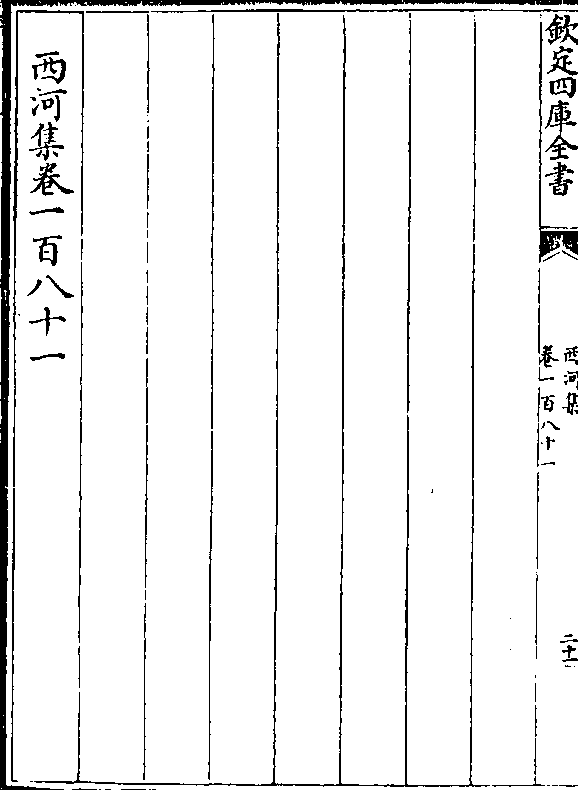 欽定四庫全書
西河集
卷一百八十一
二十一
西河集卷一百八十一